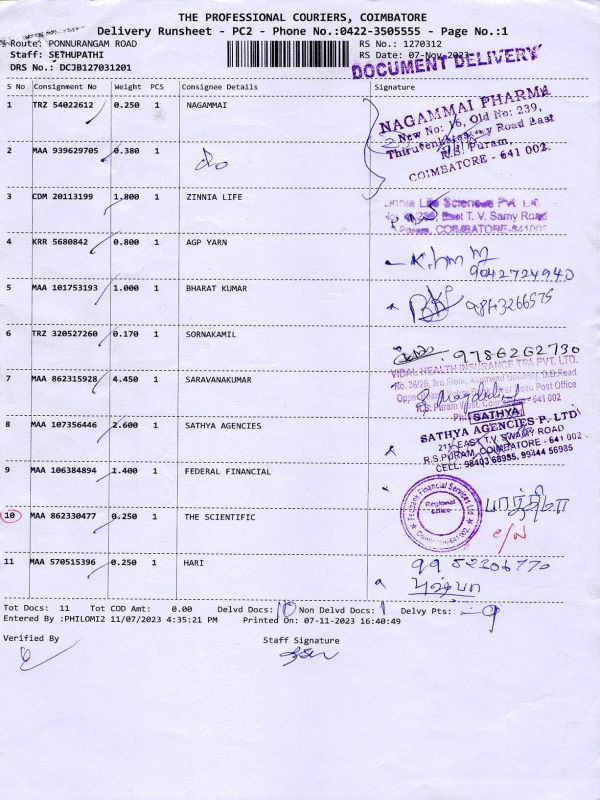 THE PROFESSIONAL COURIERS, COIMBATORE
Delivery Runsheet - PC2 - Phone No.:0422-3505555 - Page No.:1
Route: PONNURANGAM ROAD RS No.: 1270312
Staff: SETHUPATHI RS Date: 07-Nov-2023
DRS No.: DCJB127031201 DOCUMENT DELIVERY
S No Consignment No Weight PCS Consignee Details Signature
1 TRZ 54022612 0.250 1 NAGAMMAI
NAGAMMAI PHARMA
New No: 16, Old No: 239,
Road East
R.S. Puram,
COIMBATORE - 641 002.
2 MAA 939629705 0.380 1 do
3 CDM 20113199 1.800 1 ZINNIA LIFE
Zinnia Life Sciences Pvt. Ltd.
239, East T. V. Samy Road
Puram, COIMBATORE-641002
4 KRR 5680842 0.800 1 AGP YARN
9042724940
5 MAA 101753193 1.000 1 BHARAT KUMAR
6 TRZ 320527260 0.170 1 SORNAKAMIL
9786262730
7 MAA 862315928 4.450 1 SARAVANAKUMAR
VIDAL HEALTH INSURANCE TPA PVT. LTD.
No. 36/20, 3rd Floor,
Head Post Office
R.S. Puram West, 641 002
8 MAA 107356446 2.600 1 SATHYA AGENCIES
SATHYA
SATHYA AGENCIES P. LTD
211 EAST T.V. SWAMY ROAD
R.S.PURAM, COIMBATORE - 641 002.
CELL: 98403 68985, 99444 56985
9 MAA 106384894 1.400 1 FEDERAL FINANCIAL
Financial Services Ltd
Regional
Office
Coimbatore-641 002.
10 MAA 862330477 0.250 1 THE SCIENTIFIC
11 MAA 570515396 0.250 1 HARI
9952306770
Tot Docs: 11 Tot COD Amt: 0.00 Delvd Docs: 10 Non Delvd Docs: 1 Delvy Pts: 9
Entered By :PHILOMI2 11/07/2023 4:35:21 PM Printed On: 07-11-2023 16:40:49
Verified By Staff Signature